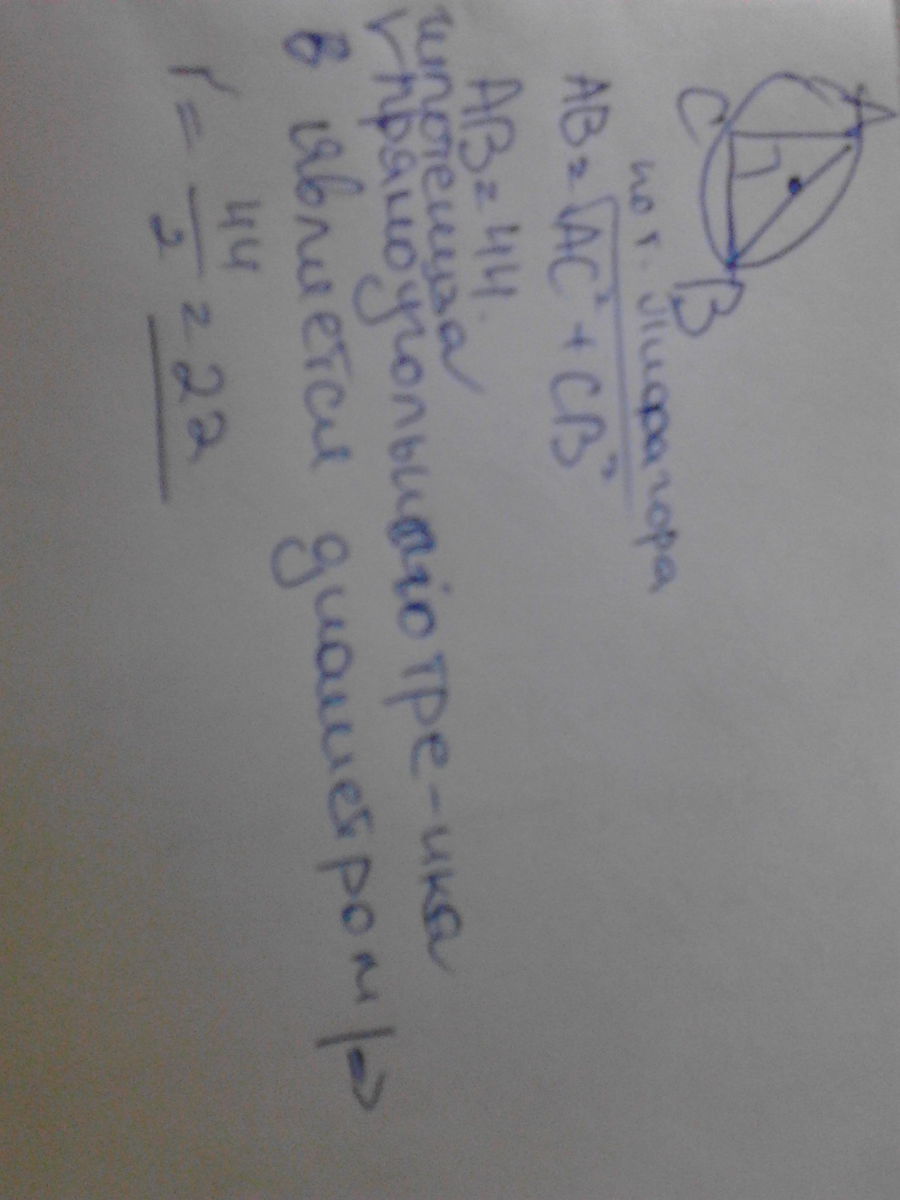 A
C
B
по т. Пифагора
AB = √AC² + CB²
AB = 44.
гипотенуза
прямоугольного тре-ика
является диаметром |⇒
r = 44/2 = 22